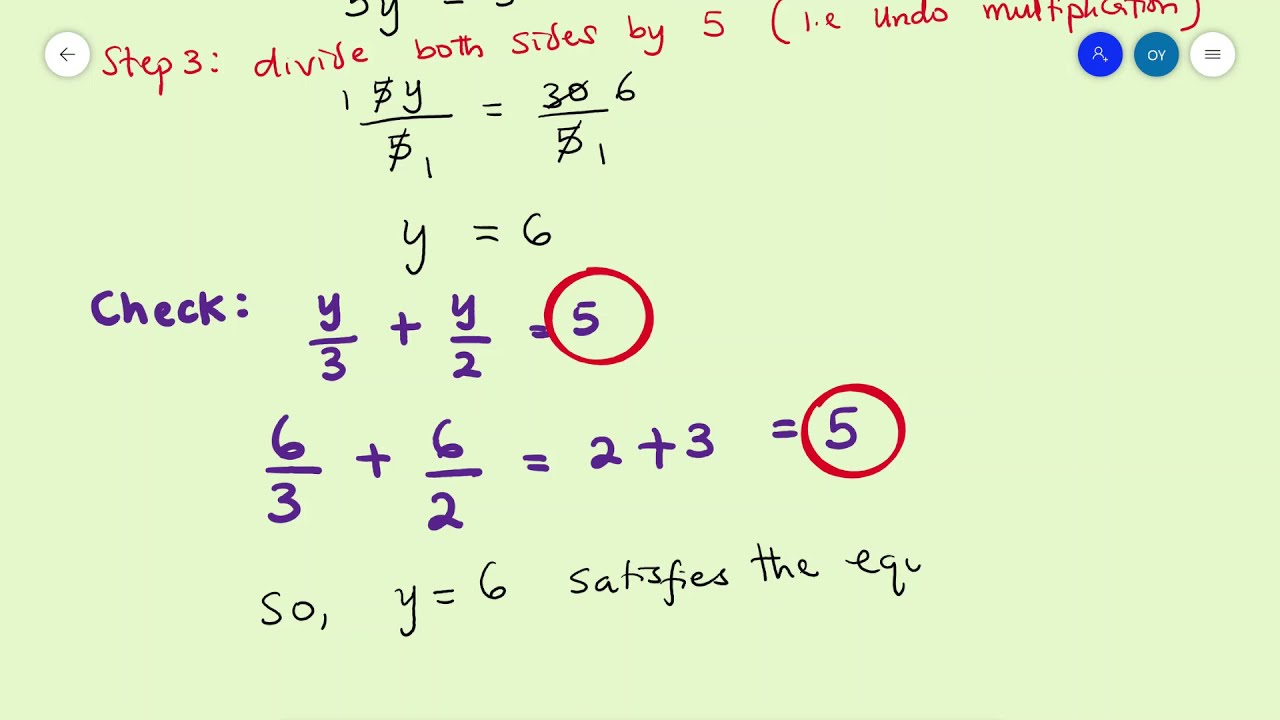 5y =
Step 3: divide both sides by 5 (i.e undo multiplication)
1 5y = 30 6
5 1 5 1
y = 6
Check: y/3 + y/2 = 5
6/3 + 6/2 = 2 + 3 = 5
So, y = 6 satisfies the equ
OY